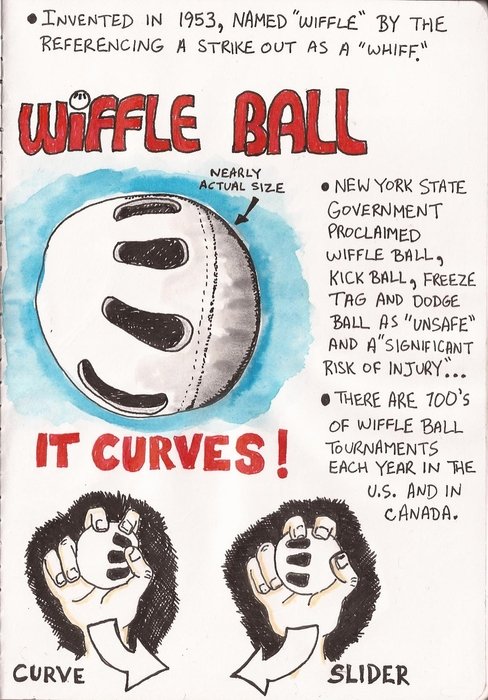 • INVENTED IN 1953, NAMED "WIFFLE" BY THE
REFERENCING A STRIKE OUT AS A "WHIFF."
WIFFLE BALL
NEARLY
ACTUAL SIZE
• NEW YORK STATE
GOVERNMENT
PROCLAIMED
WIFFLE BALL,
KICK BALL, FREEZE
TAG AND DODGE
BALL AS "UNSAFE"
AND A "SIGNIFICANT
RISK OF INJURY"...
• THERE ARE 100'S
OF WIFFLE BALL
TOURNAMENTS
EACH YEAR IN THE
U.S. AND IN
CANADA.
IT CURVES!
CURVE
SLIDER